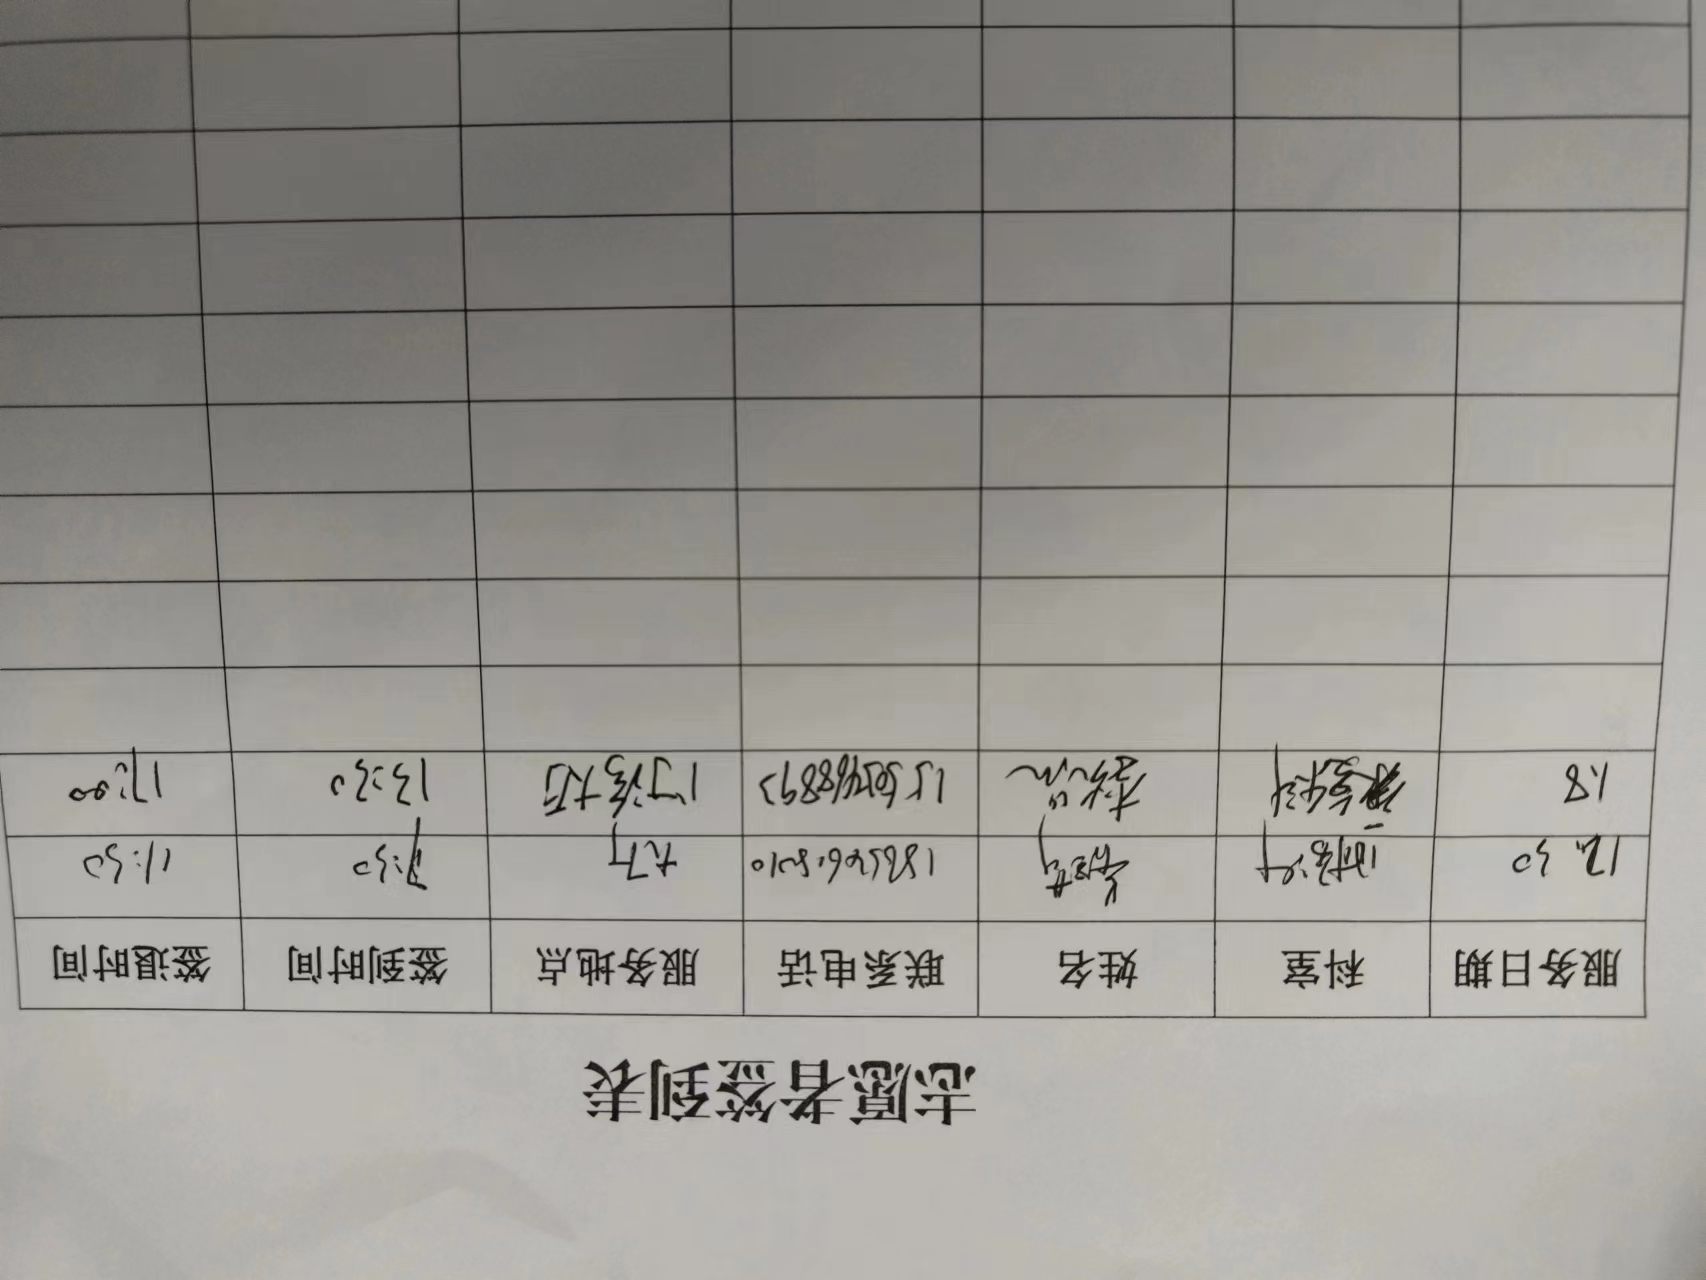 志愿者签到表
服务日期 科室 姓名 联系电话 服务地点 签到时间 签退时间
12.30 大厅 7:30 11:30
1.8 15305468893 门诊大厅 13:30 17:00